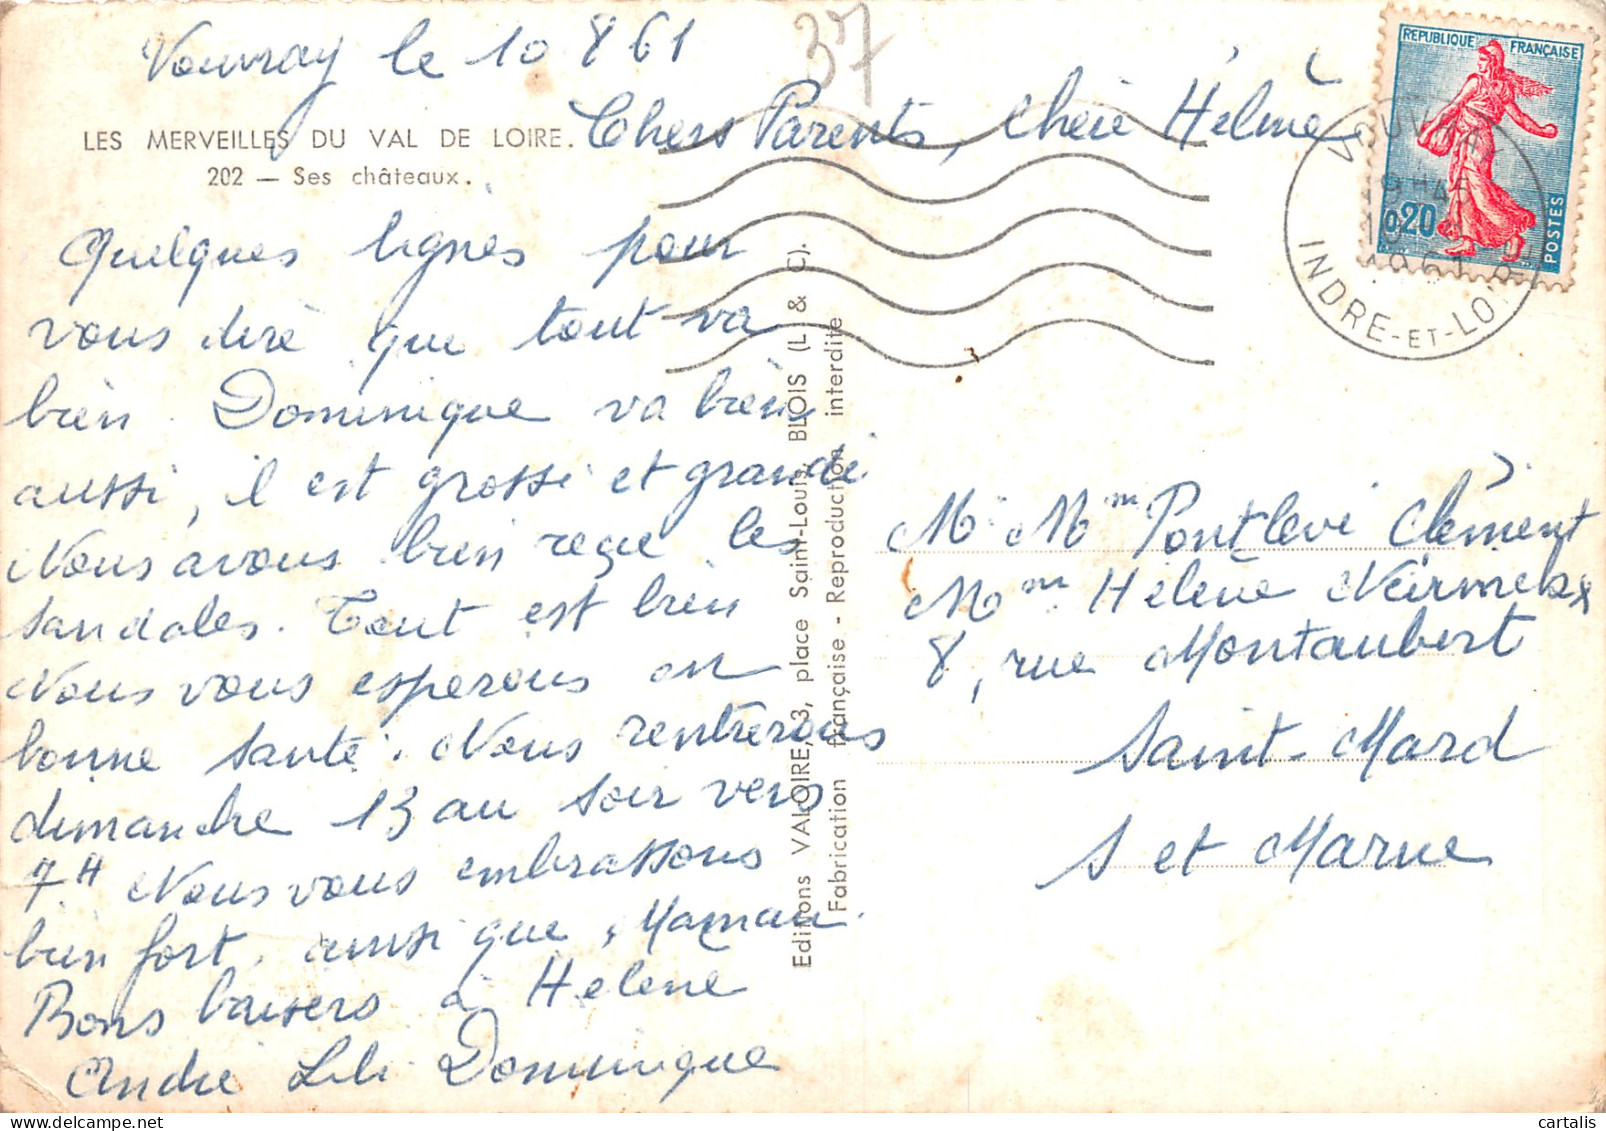 Vouvray le 10 8 61
37
LES MERVEILLES DU VAL DE LOIRE.
202 — Ses châteaux.
Chers Parents, Chère Hélène
Quelques lignes pour
vous dire que tout va
bien. Dominique va bien
aussi, il est grossi et grandi
Nous avons bien reçu les
sandales. Tout est bien
Nous vous esperons en
bonne santé. Nous rentrerons
dimanche 13 au soir vers
7H Nous vous embrassons
bien fort, ainsi que Maman.
Bons baisers à Helene
André Lili Dominique
Editions VALOIRE, 3, place Saint-Louis, BLOIS (L. & C).
Fabrication française - Reproduction interdite
REPUBLIQUE FRANÇAISE
0,20
POSTES
VOUVRAY
19H45
1961
INDRE-ET-LOIRE
M. Mm Pontlevé Clément
Mm Hélène
8, rue Montaubert
Saint-Mard
S et Marne
cartalis